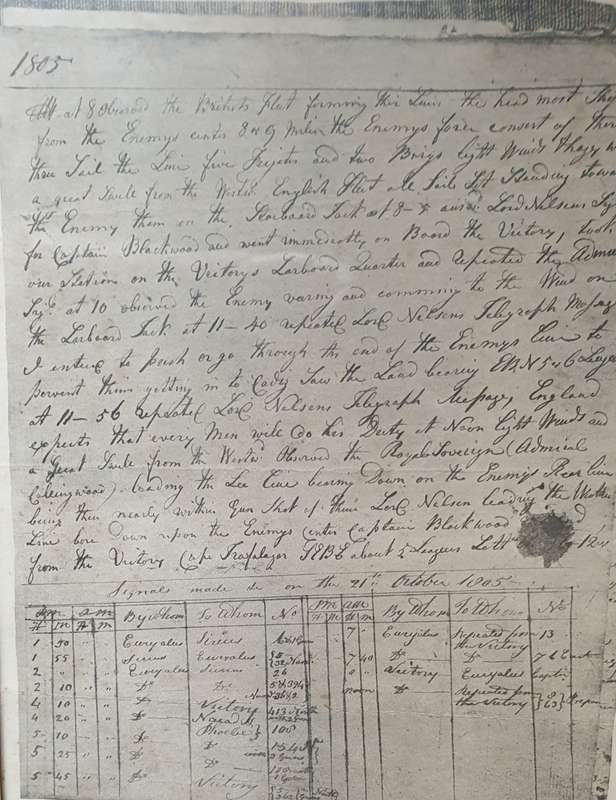 1805
at 8 Observd the British Fleet forming their Line the head most Ships
from the Enemys center 8 or 9 Miles, the Enemys force consest of thirty
three Sail the Line five Frigates and two Brigs light Winds & hazy with
a great Swele from the Westwd English Fleet all Sail Set Standing towards
the Enemy them on the Starboard Tack at 8- answd Lord Nelsens Sigl
for Captain Blackwood and went immediately on Board the Victory, took
our Station on the Victorys Larboard Quarter and repeated the Admirals
Sigs at 10 observed the Enemy waring and comming to the Wind on
the Larboard Tack at 11-40 repeated Lord Nelsens Telegraph Message
I intend to push or go through the end of the Enemys Line to
pervent them getting in to Cadiz Saw the Land bearing EBN 5 or 6 Leagues
at 11-56 repeated Lord Nelsens Telegraph Message England
expects that every Men will do his Duty at Noon light Winds and
a Great Swele from the Westwd Observed the Royal Sovereign (Admiral
Collingwood) leading the Lee Line bearing Down on the Enemys Rear Line
being then nearly within Gun Shot of them Lord Nelsen leading the Weather
Line bore Down upon the Enemys Center Captain Blackwood
from the Victory Cape Trafalgar SEBE about 5 Leagues
Signals made on the 21st October 1805
pm am By Whom To Whom No pm am By Whom To Whom No
H M H M H M H M
1 50 " " Euryalus Sirius 7 " Euryalus Repeated from the Victory 13
1 55 " " Sirius Euryalus 7 40 Do Do
2 " " " Euryalus Sirius 26 Victory Euryalus Capt
2 10 " " Do Do noon Do Repeated from the Victory 63
4 10 " " Do Victory 413
4 20 " " Do Naiad
5-10 " " Do Phoebe 108
5 25 " " Do Do
5-45 " " Do Victory